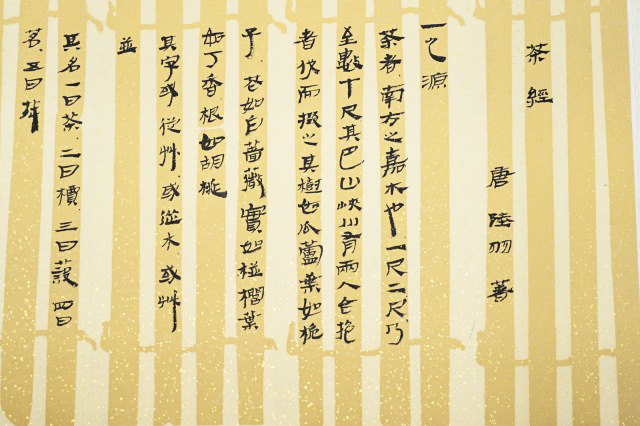 茶經
唐陸羽著
一之源
茶者南方之嘉木也一尺二尺乃
至數十尺其巴山峽川有兩人合抱
者伐而掇之其樹如瓜蘆葉如梔
子花如白薔薇實如栟櫚葉
如丁香根如胡桃
其字或從艸或從木或艸
並
其名一曰茶二曰檟三曰蔎四曰
茗五曰荈